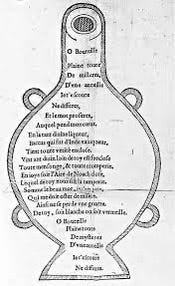 O Bouteille
Plaine toute
De misteres,
D'vne aureille
Ie t'escoute
Ne differes,
Et le mot proferes,
Auquel pend mon cœur.
En la tant diuine liqueur,
Bacchus qui fut d'Inde vainqueur,
Tient toute verité enclose.
Vin tant diuin loin de toy est forclose
Toute mensonge, & toute tromperie.
En ioye soit l'Aire de Noach close,
Lequel de toy nous fist la temperie.
Sonne le beau mot, ie t'en prie,
Qui me doit oster de misere.
Ainsi ne se perde vne goutte.
De toy, soit blanche ou soit vermeille.
O Bouteille
Plaine toute
De mysteres
D'vne aureille
Ie t'escoute
Ne differes.